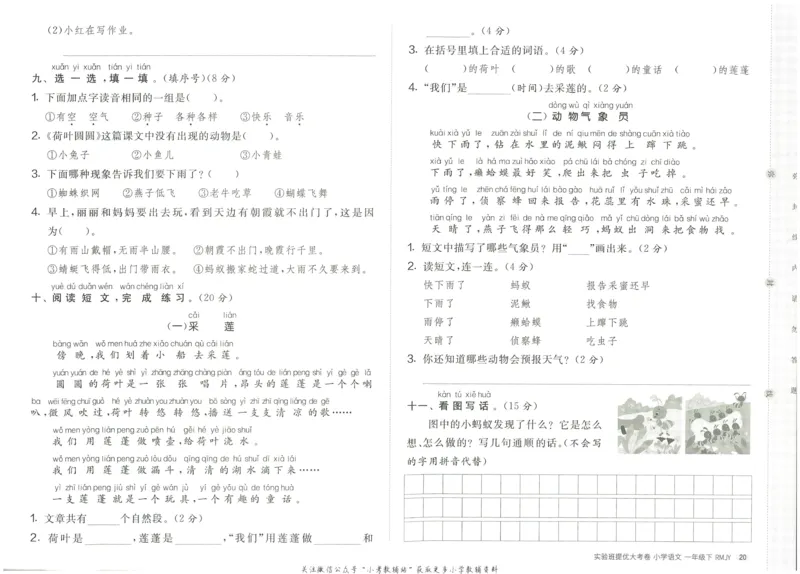 (2)小红在写作业。
xuǎn yi xuǎn tián yi tián
九、选一选,填一填。(填序号)(8分)
1. 下面加点字读音相同的一组是(　　)。
①有空 空气 ②种子 各种各样 ③快乐 音乐
2.《荷叶圆圆》这篇课文中没有出现的动物是(　　)。
①小兔子 ②小鱼儿 ③小青蛙
3. 下面哪种现象告诉我们要下雨了?(　　)
①蜘蛛织网 ②燕子低飞 ③老牛吃草 ④蝴蝶飞舞
4. 早上,丽丽和妈妈要出去玩,看到天边有朝霞就不出门了,这是因
为(　　)。
①有雨山戴帽,无雨半山腰。 ②朝霞不出门,晚霞行千里。
③蜻蜓飞得低,出门带雨衣。 ④蚂蚁搬家蛇过道,大雨不久要来到。
yuè dú duǎn wén wán chéng liàn xí
十、阅读短文,完成练习。(20分)
cǎi lián
(一)采 莲
bàng wǎn wǒ men huá zhe xiǎo chuán qù cǎi lián
傍晚,我们划着小船去采莲。
yuán yuán de hé yè shì yì zhāng zhāng chàng piàn áng tóu de lián peng shì yí gè gè lǎ
圆圆的荷叶是一张张唱片,昂头的莲蓬是一个个喇
ba wēi fēng chuī guò hé yè zhuàn you zhuàn you bō sòng yì zhī zhī qīng liáng de gē
叭,微风吹过,荷叶转悠转悠,播送一支支清凉的歌……
wǒ men yòng lián peng zuò pēn hú gěi hé yè jiāo shuǐ
我们用莲蓬做喷壶,给荷叶浇水。
wǒ men yòng lián peng zuò lòu dǒu qīng qīng de hú shuǐ dī xià lái
我们用莲蓬做漏斗,清清的湖水滴下来……
yì zhī lián peng jiù shì yí gè wán jù yí gè yǒu qù de tóng huà
一支莲蓬就是一个玩具,一个有趣的童话。
1. 文章共有______个自然段。(2分)
2. 荷叶是________,莲蓬是________,“我们”用莲蓬做________和
________。(4分)
3. 在括号里填上合适的词语。(4分)
(　　)的荷叶 (　　)的歌 (　　)的童话 (　　)的莲蓬
4. “我们”是________(时间)去采莲的。(2分)
dòng wù qì xiàng yuán
(二)动物气象员
kuài xià yǔ le zuān zài shuǐ lǐ de ní qiu mèn de shàng cuān xià tiào
快下雨了,钻在水里的泥鳅闷得上蹿下跳。
xià yǔ le lài há ma zuì hǎo xiào pá chū lái bǎ chóng zi chī diào
下雨了,癞蛤蟆最好笑,爬出来把虫子吃掉。
yǔ tíng le zhēn chá fēng huí lái bào gào huā ruǐ lǐ yǒu shuǐ zhū cǎi mì hái zǎo
雨停了,侦察蜂回来报告,花蕊里有水珠,采蜜还早。
tiān qíng le yàn zi fēi de nà me qīng qiǎo mǎ yǐ chū dòng lái bǎ shí wù zhǎo
天晴了,燕子飞得那么轻巧,蚂蚁出洞来把食物找。
1. 短文中描写了哪些气象员?用“____”画出来。(2分)
2. 读短文,连一连。(4分)
快下雨了 蚂蚁 报告采蜜还早
下雨了 泥鳅 找食物
雨停了 癞蛤蟆 上蹿下跳
天晴了 侦察蜂 吃虫子
3. 你还知道哪些动物会预报天气?(2分)
kàn tú xiě huà
十一、看图写话。(15分)
图中的小蚂蚁发现了什么?它是怎么
想、怎么做的?写几句通顺的话。(不会写
的字用拼音代替)
实验班提优大考卷 小学语文 一年级下 RMJY 20
关注微信公众号“小考教辅站”获取更多小学教辅资料